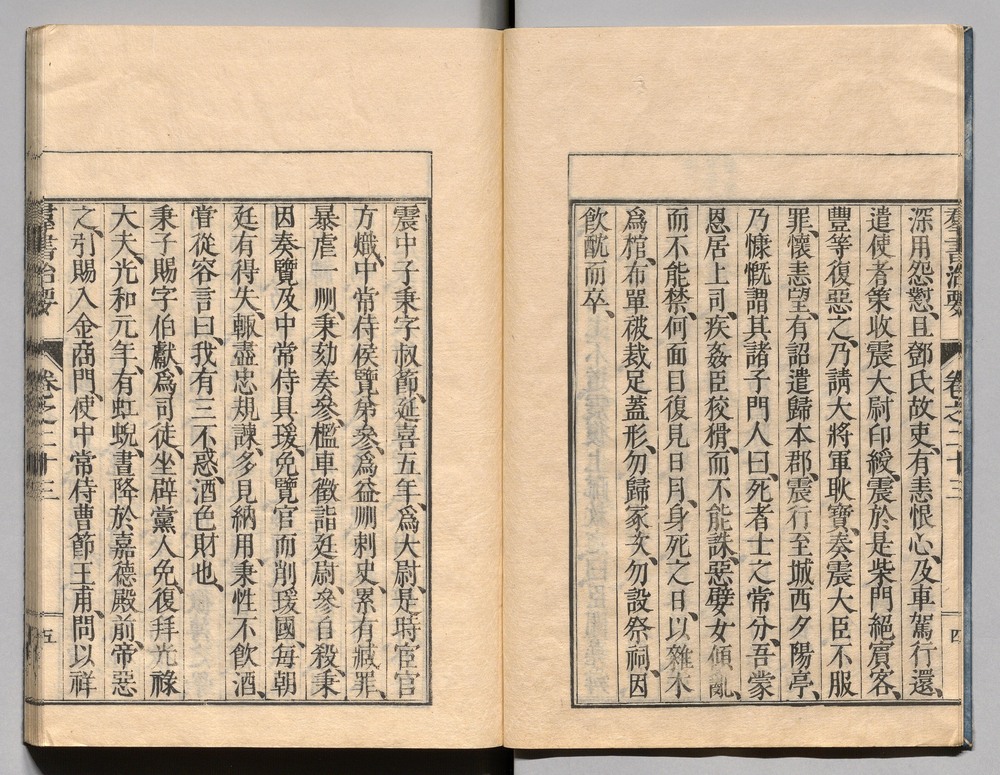 羣書治要 卷之二十三 四
深用怨懟、且鄧氏故吏、有恚恨心、及車駕行還、
遣使者策收震大尉印綬、震於是柴門絕賓客、
豐等復惡之、乃請大將軍耿寶、奏震大臣不服
罪、懷恚望、有詔遣歸本郡、震行至城西夕陽亭、
乃慷慨謂其諸子門人曰、死者士之常分、吾蒙
恩居上司、疾姦臣狡猾、而不能誅、惡嬖女傾亂、
而不能禁、何面目復見日月、身死之日、以雜木
爲棺、布單被裁足蓋形、勿歸冢次、勿設祭祠、因
飲酖而卒、
震中子秉字叔節、延喜五年、爲大尉、是時宦官
方熾、中常侍侯覽弟參、爲益州刺史、累有臧罪、
暴虐一州、秉劾奏參、檻車徵詣廷尉、參自殺、秉
因奏覽及中常侍具瑗、免覽官而削瑗國、每朝
廷有得失、輙盡忠規諫、多見納用、秉性不飲酒、
甞從容言曰、我有三不惑、酒色財也、
秉子賜字伯獻、爲司徒、坐辟黨人免、復拜光祿
大夫、光和元年、有虹蜺、晝降於嘉德殿前、帝惡
之、引賜入金商門、使中常侍曹節王甫、問以祥
羣書治要 卷之二十三 五